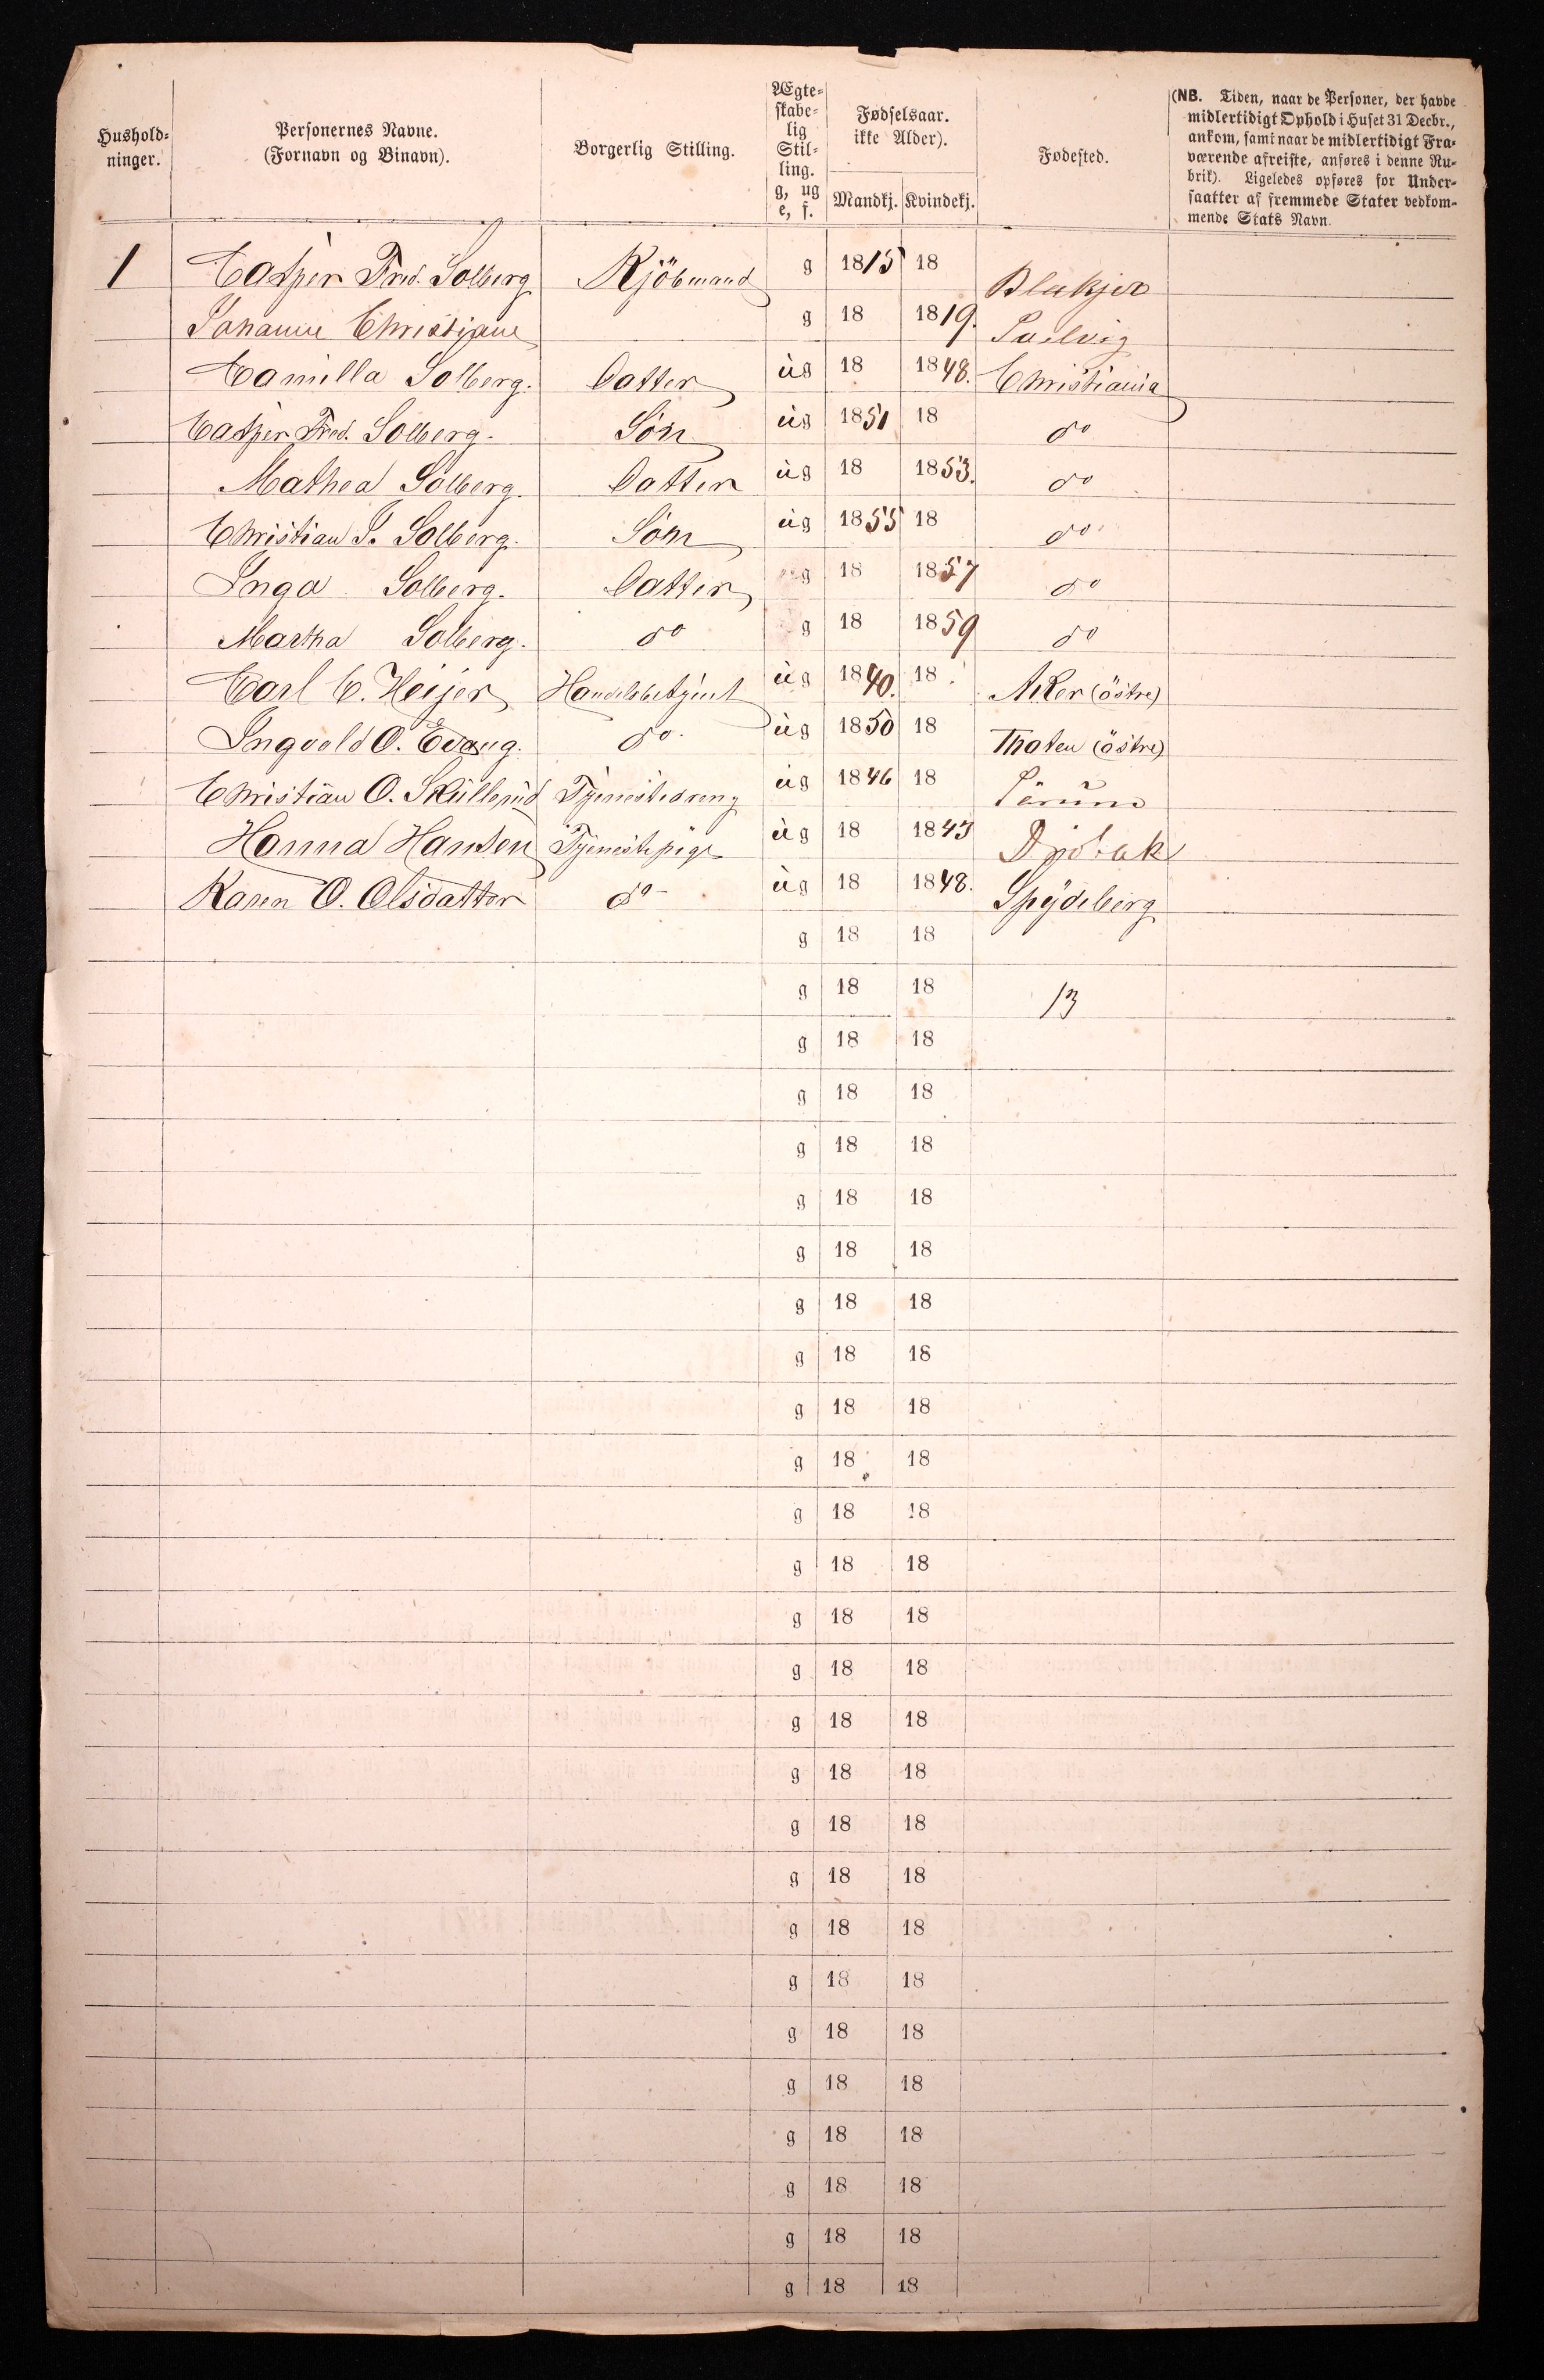 Hushold-
ninger.
Personernes Navne.
(Fornavn og Binavn).
Borgerlig Stilling.
Ægte-
skabe-
lig
Stil-
ling.
g, ug
e, f.
Fødselsaar.
ikke Alder).
Mandkj. Kvindekj.
Fødested.
(NB. Tiden, naar de Personer, der havde
midlertidigt Ophold i Huset 31 Decbr.,
ankom, samt naar de midlertidigt Fra-
værende afreiste, anføres i denne Ru-
brik). Ligeledes opføres for Under-
saatter af fremmede Stater vedkom-
mende Stats Navn.
1 Casper Fred. Solberg Kjöbmand g 1815 18 Blakjer
Johanne Christiane g 18 1819.
Camilla Solberg. Datter ug 18 1848. Christiania
Casper Fred. Solberg. Sön ug 1851 18 do
Mathea Solberg. Datter ug 18 1853. do
Christian J. Solberg. Sön ug 1855 18 do
Inga Solberg. Datter g 18 1857 do
Martha Solberg. do g 18 1859 do
Carl C. Heijer Handelsbetjent ug 1840. 18 Aker (östre)
Ingvold O. Evang. do. ug 1850 18 Thoten (östre)
Christian O. Skullerud Tjenestedreng ug 1846 18 Sörum
Hanna Hansen Tjenestepige ug 18 1843 Dröbak
Karen O. Olsdatter do ug 18 1848. Spydeberg
g 18 18
g 18 18 13
g 18 18
g 18 18
g 18 18
g 18 18
g 18 18
g 18 18
g 18 18
g 18 18
g 18 18
g 18 18
g 18 18
g 18 18
g 18 18
g 18 18
g 18 18
g 18 18
g 18 18
g 18 18
g 18 18
g 18 18
g 18 18
g 18 18
g 18 18
g 18 18
g 18 18